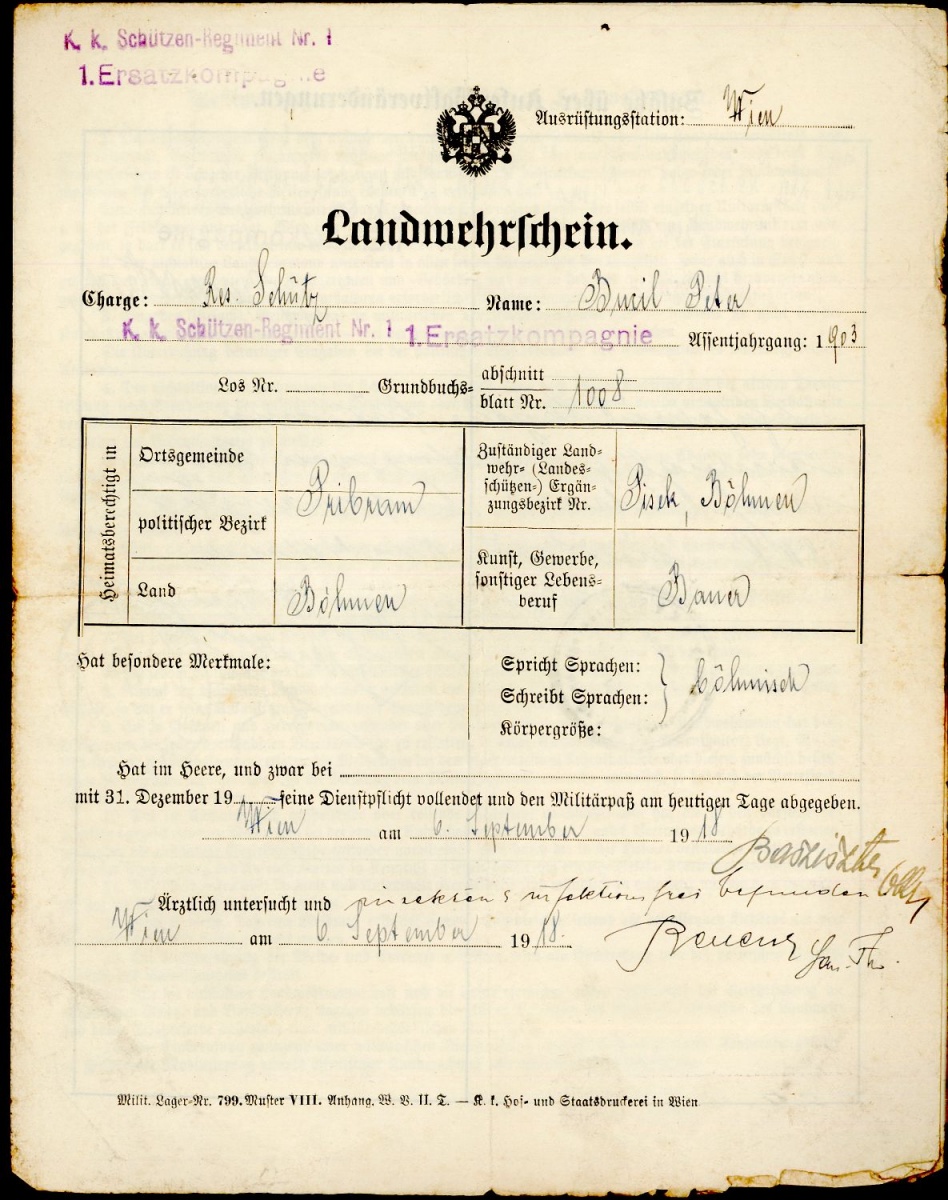 K. k. Schützen-Regiment Nr. 1
1. Ersatzkompagnie
Ausrüstungsstation: Wien
Landwehrschein.
Charge: Res. Schütz Name: Bucil Peter
K. k. Schützen-Regiment Nr. 1 1. Ersatzkompagnie Assentjahrgang: 1903
Los Nr. Grundbuchs- abschnitt
blatt Nr. 1008
Heimatsberechtigt in
Ortsgemeinde
politischer Bezirk
Pribram
Land
Böhmen
Zuständiger Land-
wehr- (Landes-
schützen-) Ergän-
zungsbezirk Nr.
Pisek, Böhmen
Kunst, Gewerbe,
sonstiger Lebens-
beruf
Bauer
Hat besondere Merkmale:
Spricht Sprachen:
Schreibt Sprachen:
böhmisch
Körpergröße:
Hat im Heere, und zwar bei
mit 31. Dezember 19 seine Dienstpflicht vollendet und den Militärpaß am heutigen Tage abgegeben.
Wien am 6. September 1918
Ärztlich untersucht und infektionsfrei befunden
Wien am 6. September 1918.
Milit. Lager-Nr. 799. Muster VIII. Anhang. W. V. II. T. — K. k. Hof- und Staatsdruckerei in Wien